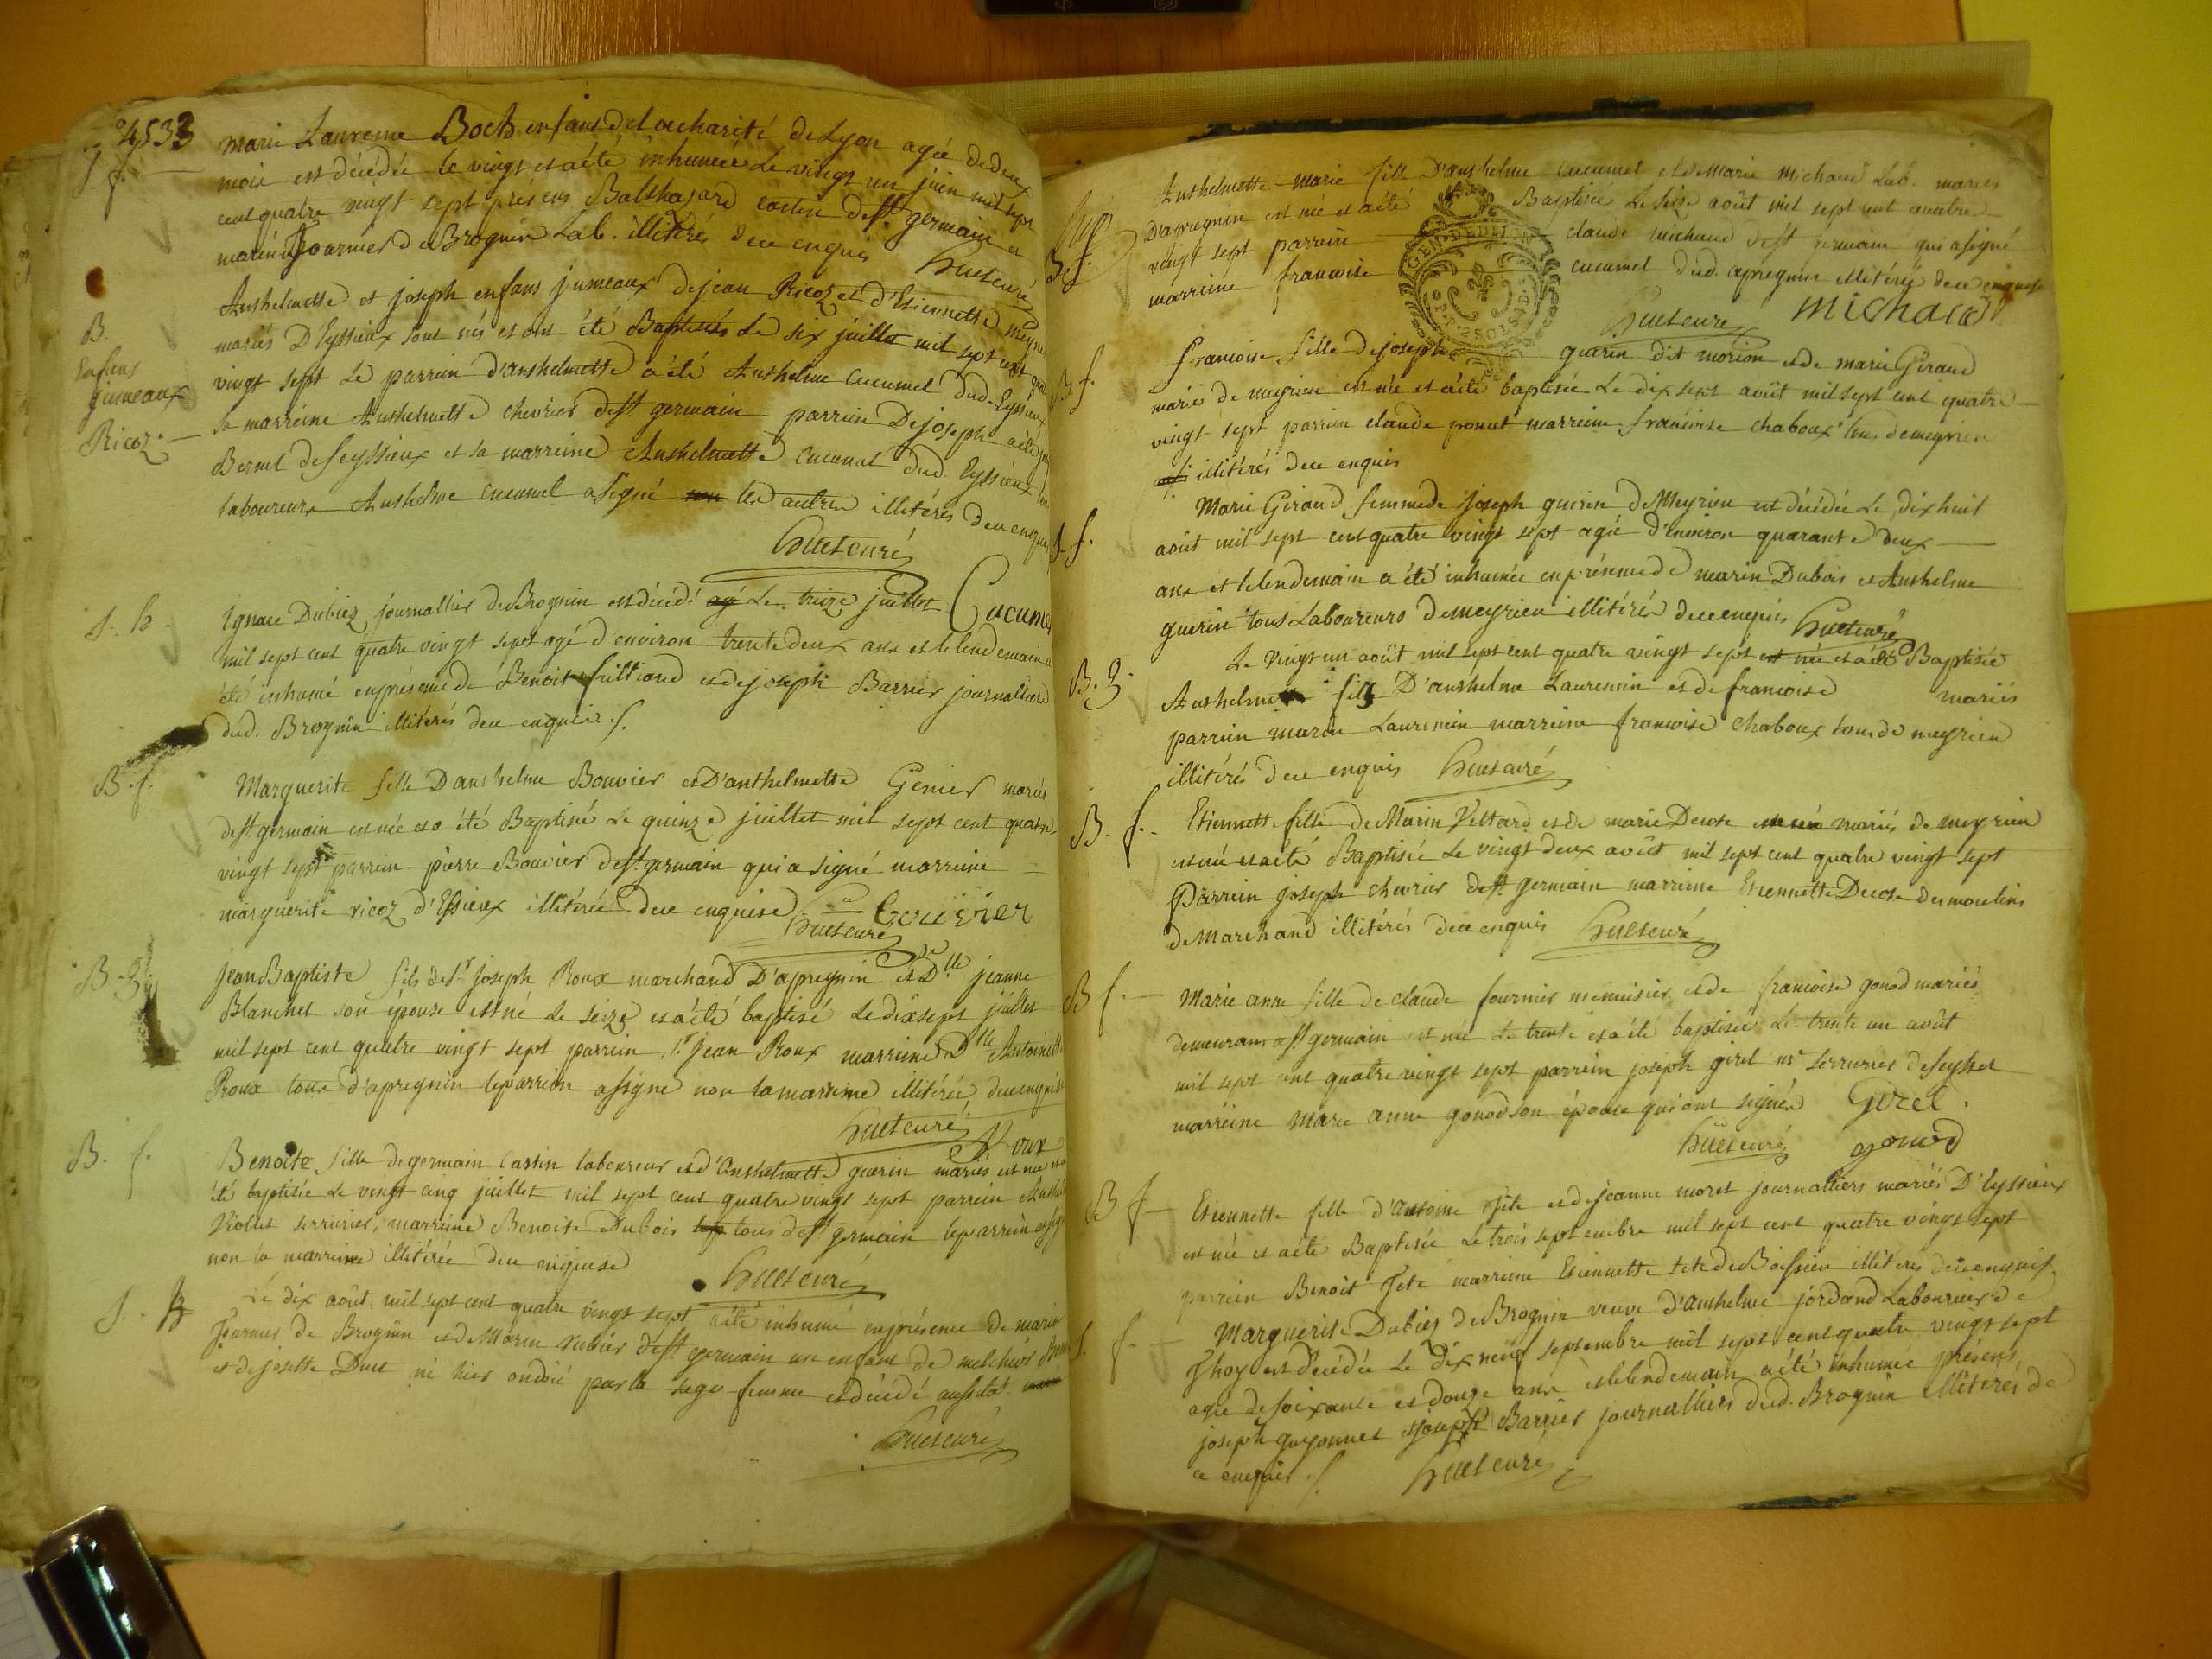 4533
J. f.
marie Laurence Boch enfant de la charité de Lyon agée de deux
mois est décédée le vingt et a été inhumée Le vingt un juin mil sept
cent quatre vingt sept présens Balthazard cartin de st germain et
marin fournier de Brognin Lab. illitérés de ce enquis huet curé
B.
Enfans
jumeaux
Ricoz
Anthelmette et joseph enfans jumeaux de jean Ricoz et d'Etiennette meyni
mariés D'Eyssieux sont nés et ont été Baptisés Le six juillet mil sept cent
vingt sept Le parrein d'anthelmette a été Anthelme Cucumel dud. Eyssieux
sa marreine Anthelmette chevrier de st germain parrein De joseph a été
Bernet de seyssieux et sa marreine Anthelmette Cucumel dud. Eyssieux
laboureurs Anthelme Cucumel a signé les autres illitérés de ce enquis
huet curé
Cucumel
J. h.
Ignace Dubiez journallier de Brognin est décédé Le treize juillet
mil sept cent quatre vingt sept agé d'environ trente deux ans et le lendemain a
été inhumé en présence de Benoit et de joseph Barrier journalliers
dud. Brognin illitérés de ce enquis
B. f.
Marguerite fille D'anthelme Bouvier et D'anthelmette Genier mariés
de st germain est née et a été Baptisée Le quinze juillet mil sept cent quatre
vingt sept parrein pierre Bouvier de st germain qui a signé marreine
marguerite ricoz d'Essieux illitérée de ce enquise Bouvier
huet curé
B. g.
jean Baptiste fils de sr joseph Roux marchand D'apregnin et de Dlle jeanne
Blanchet son épouse est né Le seize et a été baptisé Le dix sept juillet
mil sept cent quatre vingt sept parrein sr jean Roux marreine Dlle Antoinette
Roux tous d'apregnin le parrein a signé non la marreine illitérée de ce enquise
huet curé Roux
B. f.
Benoite fille de germain Cartin laboureur et d'Anthelmette guerin mariés est née et a
été baptisée Le vingt cinq juillet mil sept cent quatre vingt sept parrein
Viollet serrurier, marreine Benoite Dubois tous de st germain le parrein a signé
non la marreine illitérée de ce enquise huet curé
J.
Le dix août mil sept cent quatre vingt sept a été inhumé en présence de marin
fournier de Brognin et de Marin rubier de st germain un enfant de melchior
et de josette Duet né hier ondoié par la sage femme et décédé aussitot
huet curé
B. f.
Anthelmette-marie fille D'anthelme Cucumel et de Marie Michaud Lab. mariés
D'apregnin est née et a été Baptisée Le seize août mil sept cent quatre
vingt sept parrein claude michaud de st germain qui a signé
marreine francoise cucumel dud. apregnin illitérée de ce enquise
huet curé Michaud
GEN. DE DIJON
B. f.
francoise fille de joseph guerin dit morion et de marie Giraud
mariés de meyrieu est née et a été baptisée Le dix sept août mil sept cent quatre
vingt sept parrein claude poncet marreine francoise chaboux tous de meyrieu
illitérés de ce enquis
J. f.
Marie Giraud femme de joseph guerin de Meyrieu est décédée Le dix huit
août mil sept cent quatre vingt sept agée d'environ quarante deux
ans et le lendemain a été inhumée en présence de marin Dubois et Anthelme
guerin tous Laboureurs de meyrieu illitérés de ce enquis huet curé
B. g.
Le vingt un août mil sept cent quatre vingt sept est née et a été Baptisée
Anthelme fils D'anthelme Laurencin et de francoise mariés
parrein marin Laurencin marreine francoise Chaboux tous de meyrieu
illitérés de ce enquis huet curé
B. f.
Etiennette fille de Marin Vettard et de marie Decose mariés de meyrieu
est née et a été Baptisée Le vingt deux août mil sept cent quatre vingt sept
Parrein joseph chevrier de st germain marreine Etiennette Decose des moulins
de Marchand illitérés de ce enquis huet curé
B f.
Marie anne fille de claude fournier menuisier et de francoise gonod mariés
demeurans a st germain est née Le trente et a été baptisée Le trente un août
mil sept cent quatre vingt sept parrein joseph girel me serrurier de seyssel
marreine Marie anne gonod son épouse qui ont signés Girel
huet curé gonod
B f
Etiennette fille d'Antoine Tete et de jeanne moret journalliers mariés D'Eyssieux
est née et a été Baptisée Le trois septembre mil sept cent quatre vingt sept
parrein Benoit Tete marreine Etiennette tete de Boissieu illitérés de ce enquis
J. f.
Marguerite Dubiez de Brognin veuve d'anthelme jordand Laboureur de
Thoy est décédée Le dix neuf septembre mil sept cent quatre vingt sept
agée de soixante et douze ans et le lendemain a été inhumée présens
joseph guyonnet et joseph Barrier journalliers dud. Brognin illitérés de
ce enquis huet curé